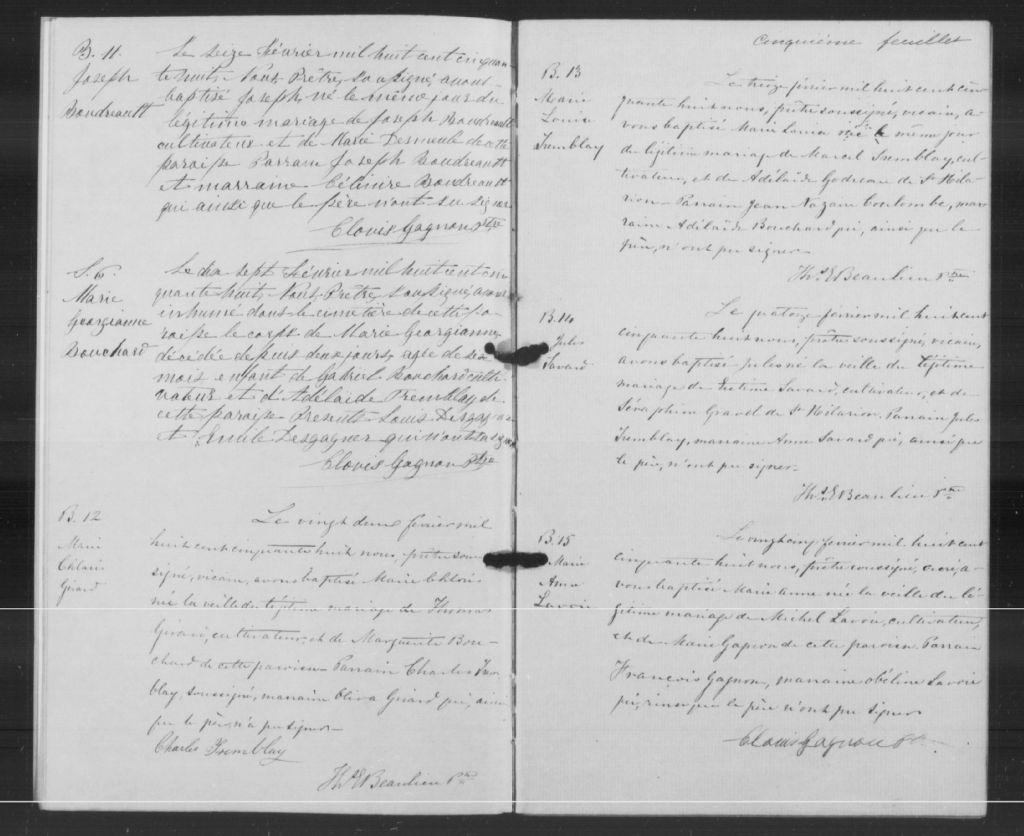 B. 11.
Joseph
Boudreault
Le seize Février mil huit cent cinquan
te huit, Nous Prêtre, soussigné avons
baptisé Joseph, né le même jour du
légitime mariage de Joseph Boudreault
cultivateur et de Marie Desmeule de cette
paroisse Parrain Joseph Boudreault
et marraine Célinire Boudreault
qui ainsi que le père n'ont su signer
Clovis Gagnon Ptre
S. 6.
Marie
Georgianne
Bouchard
Le dix sept Février mil huit cent cin
quante huit, Nous Prêtre, soussigné, avons
inhumé dans le cimetière de cette pa-
roisse le corps de Marie Georgianne
décédée depuis deux jours, agée de
mois enfant de Gabriel Bouchard culti-
vateur et d'Adélaide Tremblay de
cette paroisse Présents Louis Desgagné
et Emile Desgagner qui n'ont su signer
Clovis Gagnon Ptre
B. 12
Marie
Chloris
Girard
Le vingt deux février mil
huit cent cinquante huit nous, prêtre sous
signé, vicaire, avons baptisé Marie Chloris
née la veille du légitime mariage de Thomas
Girard, cultivateur, et de Marguerite Bou-
chard de cette paroisse. Parrain Charles Trem
blay, soussigné, marraine Oliva Girard qui, ainsi
que le père, n'a pu signer.
Charles Tremblay
Ths. E Beaulieu Ptre
Cinquième feuillet
B. 13
Marie
Louise
Tremblay
Le treize février mil huit cent cin-
quante huit nous, prêtre soussigné, vicaire, a-
vons baptisé Marie Louise née le même jour
du légitime mariage de Marcel Tremblay, cul-
tivateur, et de Adélaïde Godreau de St Hila-
rion. Parrain Jean Nazaire Coulombe, mar-
raine Adélaïde Bouchard qui, ainsi que le
père, n'ont pu signer.
Ths. E Beaulieu Ptre
B. 14
Jules
Savard
Le quatorze février mil huit cent
cinquante huit nous, prêtre soussigné, vicaire,
avons baptisé Jules né la veille du légitime
mariage de Savard, cultivateur, et de
Séraphine Gravel de St Hilarion. Parrain Jules
Tremblay, marraine Anne Savard qui, ainsi que
le père, n'ont pu signer.
Ths. E Beaulieu Ptre
B. 15
Marie
Anne
Lavoie
Le vingt cinq février mil huit cent
cinquante huit nous, prêtre soussigné, curé, a-
vons baptisé Marie Anne née la veille du lé-
gitime mariage de Michel Lavoie, cultivateur,
et de Marie Gagnon de cette paroisse. Parrain
François Gagnon, marraine Obéline Lavoie
qui, ainsi que le père n'ont pu signer
Clovis Gagnon Ptre